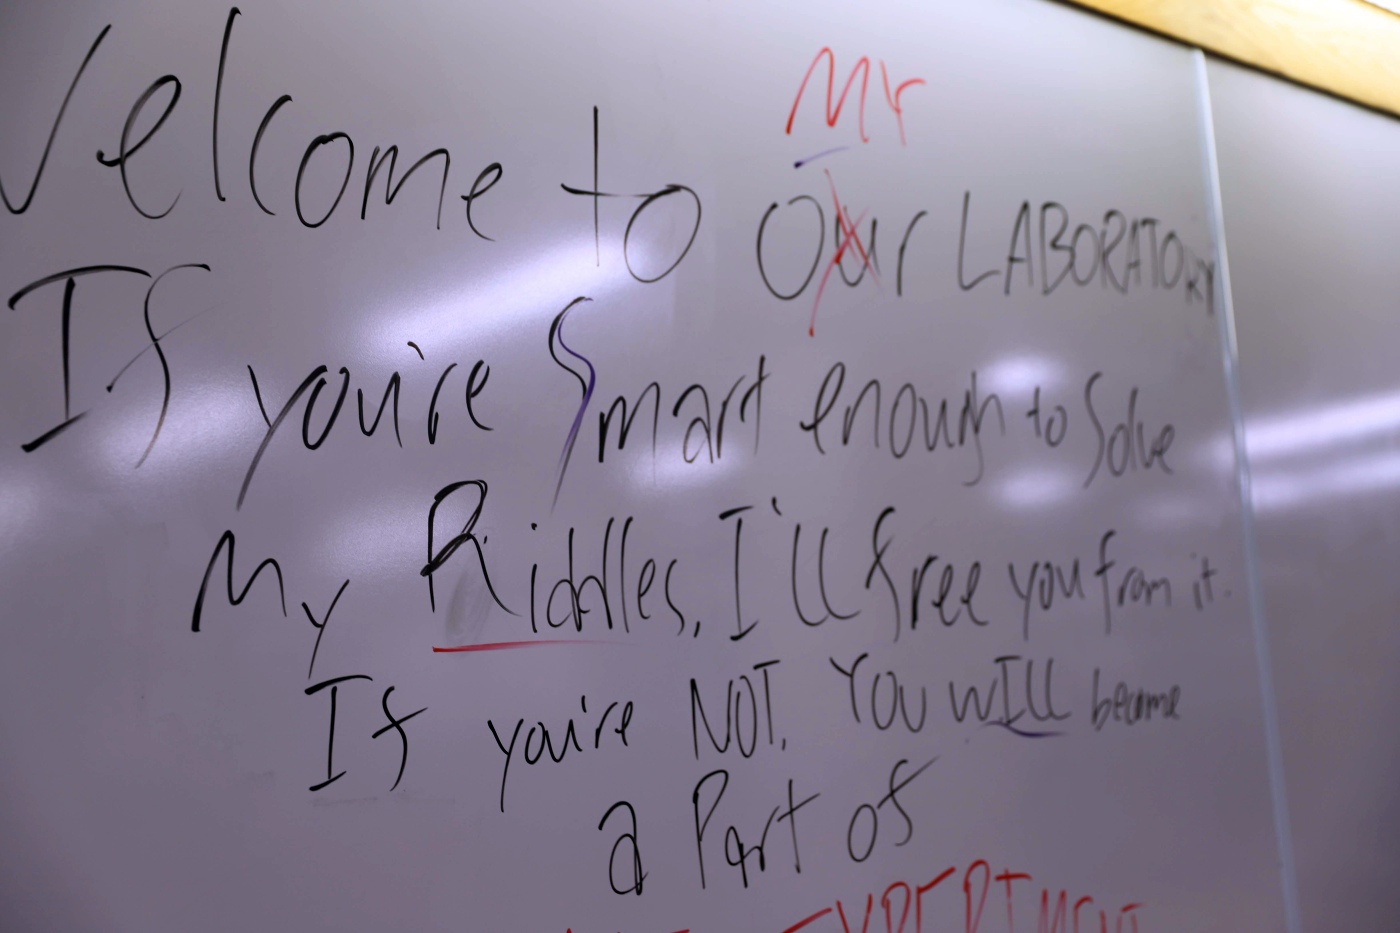 Welcome to Mr Our LABORATORY
If you're Smart enough to Solve
My Riddles, I'll free you from it.
If you're NOT, YOU WILL become
a Part of
EXPERIMENT